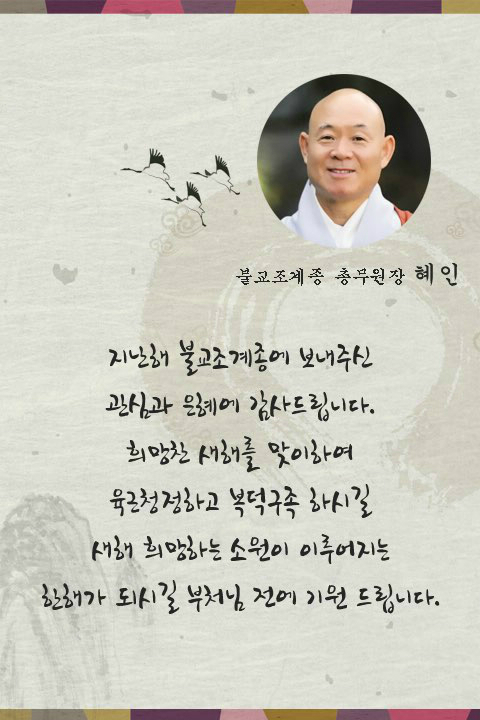 불교조계종 총무원장 혜인
지난해 불교조계종에 보내주신
관심과 은혜에 감사드립니다.
희망찬 새해를 맞이하여
육근청정하고 복덕구족 하시길
새해 희망하는 소원이 이루어지는
한해가 되시길 부처님 전에 기원 드립니다.